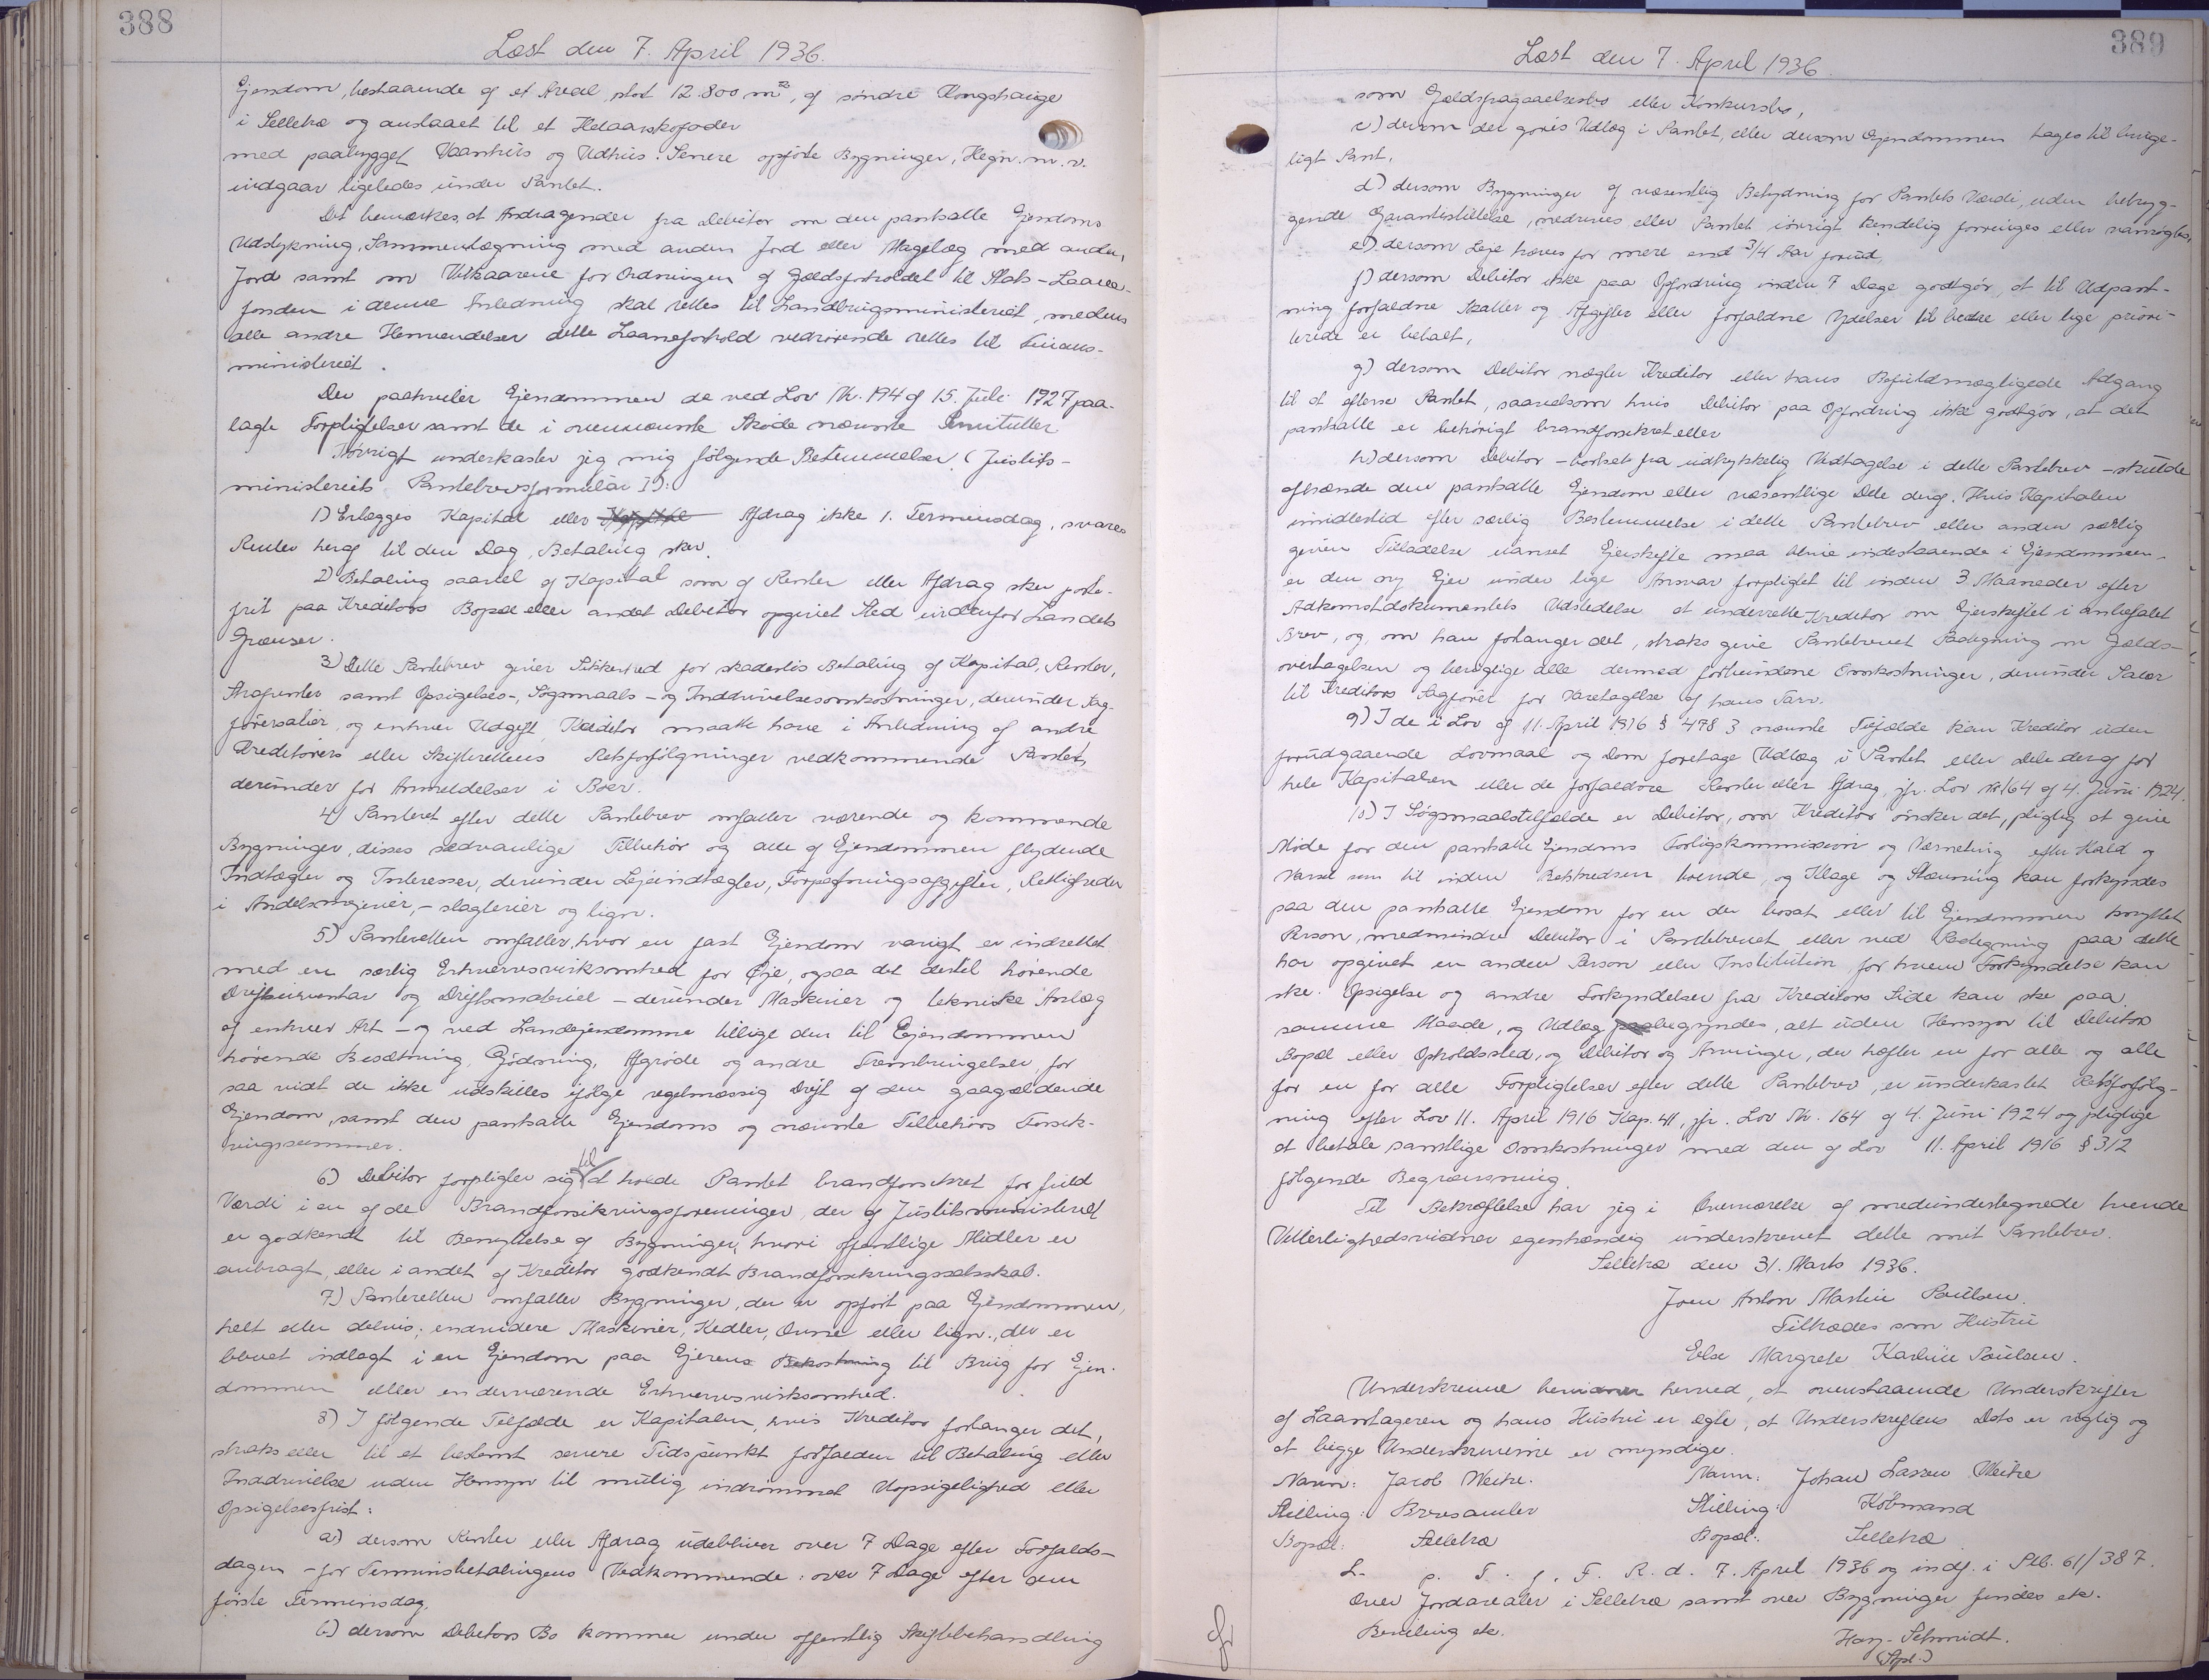 388
Læst den 7. April 1936.
Ejendom, bestaaende af et Areal, stort 12.800 m², af søndre Kongshauge
i Selletræ og anslaaet til et Helaarskofoder
med paabygget Vaanhus og Udhus. Senere opførte Bygninger, Hegn m.v.
indgaar ligeledes under Pantet.
Det bemærkes, at Andragender fra Debitor om den pantsatte Ejendoms
Udstykning, Sammenlægning med anden Jord eller Magelæg med anden
Jord samt om Vilkaarene for Ordningen af Gældsforholdet til Stats-Laane-
fonden i denne Anledning skal rettes til Landbrugsministeriet, medens
alle andre Henvendelser dette Laaneforhold vedrørende rettes til Finans-
ministeriet.
Der paahviler Ejendommen de ved Lov Nr. 174 af 15. Juli 1927 paa-
lagte Forpligtelser samt de i ovennævnte Skøde nævnte Servitutter
Iøvrigt underkaster jeg mig følgende Bestemmelser (Justits-
ministeriets Pantebrevsformular I):
1) Erlægges Kapital eller Afdrag ikke 1. Terminsdag, svares
Renter heraf til den Dag, Betaling sker.
2) Betaling saavel af Kapital som af Renter eller Afdrag sker porto-
frit paa Kreditors Bopæl eller andet Debitor opgivet Sted indenfor Landets
Grænser.
3) Dette Pantebrev giver Sikkerhed for skadesløs Betaling af Kapital, Renter,
Avgrunter samt Opsigelses-, Søgsmaals- og Inddrivelsesomkostninger, derunder Sag-
førersalær, og enhver Udgift, Kreditor maatte have i Anledning af andre
Kreditorers eller Skifterettens Retsforfølgninger vedkommende Pantet,
derunder for Anmeldelser i Boer.
4) Panteret efter dette Pantebrev omfatter værende og kommende
Bygninger, disses sædvanlige Tilbehør og alle af Ejendommen flydende
Indtægter og Interesser, derunder Lejeindtægter, Forpagtningsafgifter, Rettigheder
i Andelsmejerier, -slagterier og lign.
5) Panteretten omfatter, hvor en fast Ejendom varigt er indrettet
med en særlig Erhvervsvirksomhed for Øje, ogsaa det dertil hørende
Driftsinventar og Driftsmateriel - derunder Maskiner og tekniske Anlæg
af enhver Art - og ved Landejendomme tillige den til Ejendommen
hørende Besætning, Gødning, Afgrøde og andre Frembringelser, for
saa vidt de ikke udskilles ifølge regelmæssig Drift af den paagældende
Ejendom, samt den pantsatte Ejendoms og nævnte Tilbehørs Forsik-
ringssummer.
6) Debitor forpligter sig til at holde Pantet brandforsikret for fuld
Værdi i en af de Brandforsikringsforeninger, der af Justitsministeriet
er godkendt til Benyttelse af Bygninger, hvori offentlige Midler er
anbragt, eller i andet af Kreditor godkendt Brandforsikringsselskab.
7) Panteretten omfatter Bygninger, der er opført paa Ejendommen,
helt eller delvis; endvidere Maskiner, Kedler, Ovne eller lign., der er
blevet indlagt i en Ejendom paa Ejerens Bekostning til Brug for Ejen-
dommen eller en derværende Erhvervsvirksomhed.
8) I følgende Tilfælde er Kapitalen, hvis Kreditor forlanger det,
straks eller til et bestemt senere Tidspunkt forfalden til Betaling eller
Inddrivelse uden Hensyn til mulig indrømmet Uopsigelighed eller
Opsigelsesfrist:
a.) dersom Renter eller Afdrag udebliver over 7 Dage efter Forfalds-
dagen - for Terminsbetalingens Vedkommende: over 7 Dage efter den
første Terminsdag,
b.) dersom Debitors Bo kommer under offentlig Skiftebehandling
389
Læst den 7. April 1936.
som Gældsfragaaelsesbo eller Konkursbo,
c.) dersom der gøres Udlæg i Pantet, eller dersom Ejendommen tages til bruge-
ligt Pant,
d) dersom Bygninger af væsentlig Betydning for Pantets Værdi, uden betryg-
gende Garantistillelse, nedrives eller Pantet iøvrigt kendelig forringes eller vanrøgtes,
e) dersom Leje hæves for mere end 3/4 Aar forud,
f) dersom Debitor ikke paa Opfordring inden 7 Dage godtgør, at til Udpant-
ning forfaldne Skatter og Afgifter eller forfaldne Ydelser til bedre eller lige priori-
terede er betalt,
g) dersom Debitor nægter Kreditor eller hans Befuldmægtigede Adgang
til at efterse Pantet, saavelsom hvis Debitor paa Opfordring ikke godtgør, at det
pantsatte er behørigt brandforsikret eller
h) dersom Debitor - bortset fra udtrykkelig Vedtagelse i dette Pantebrev - skulde
afhænde den pantsatte Ejendom eller væsentlige Dele deraf. Hvis Kapitalen
imidlertid efter særlig Bestemmelse i dette Pantebrev eller anden særlig
given Tilladelse uanset Ejerskifte maa blive indestaaende i Ejendommen,
er den ny Ejer under lige Ansvar forpligtet til inden 3 Maaneder efter
Adkomstdokumentets Udstedelse at underrette Kreditor om Ejerskiftet i anbefalet
Brev, og, om han forlanger det, straks give Pantebrevet Paategning om Gælds-
overtagelsen og berigtige alle dermed forbundne Omkostninger, derunder Salær
til Kreditors Sagfører for Varetagelse af hans Tarv.
9) I de i Lov af 11. April 1916 § 478 3 nævnte Tilfælde kan Kreditor uden
forudgaaende Lovmaal og Dom foretage Udlæg i Pantet eller Dele deraf for
hele Kapitalen eller de forfaldne Renter eller Afdrag, jfr. Lov Nr 164 af 4. Juni 1924.
10) I Søgsmaalstilfælde er Debitor, om Kreditor ønsker det, pligtig at give
Møde for den pantsatte Ejendoms Forligskommission og Værneting efter Kald og
Varsel som til inden Retskredsen boende, og Klage og Stævning kan forkyndes
paa den pantsatte Ejendom for en der bosat eller til Ejendommen knyttet
Person, medmindre Debitor i Pantebrevet eller ved Paategning paa dette
har opgivet en anden Person eller Institution, for hvem Forkyndelse kan
ske. Opsigelse og andre Forkyndelser fra Kreditors Side kan ske paa
samme Maade, og Udlæg begyndes, alt uden Hensyn til Debitors
Bopæl eller Opholdssted, og Debitor og Arvinger, der hæfter en for alle og alle
for en for alle Forpligtelser efter dette Pantebrev, er underkastet Retsforfølg-
ning efter Lov 11. April 1916 Kap. 41, jfr. Lov Nr. 164 af 4. Juni 1924 og pligtige
at betale samtlige Omkostninger med den af Lov 11. April 1916 § 312
følgende Begrænsning.
Til Bekræftelse har jeg i Overværelse af medundertegnede tvende
Vitterlighedsvidner egenhændig underskrevet dette mit Pantebrev.
Selletræ den 31. Marts 1936.
Jven Anton Martin Paulsen.
Tiltrædes som Hustru
Else Margrete Kathrine Paulsen.
Underskrevne bevidner herved, at ovenstaaende Underskrifter
af Laantageren og hans Hustru er ægte, at Underskriftens Dato er rigtig og
at begge Underskriverne er myndige.
Navn: Jacob Weike. Navn: Johan Lassen Weike
Stilling: Brevsamler Stilling: Købmand
Bopæl: Selletræ Bopæl: Selletræ
L. p. T. f. F. R. d. 7. April 1936 og indf. i Ptb. 61/387.
Over Jordarealer i Selletræ samt over Bygninger findes etc.
Bevilling etc.
Hay-Schmidt.
(Spl.)